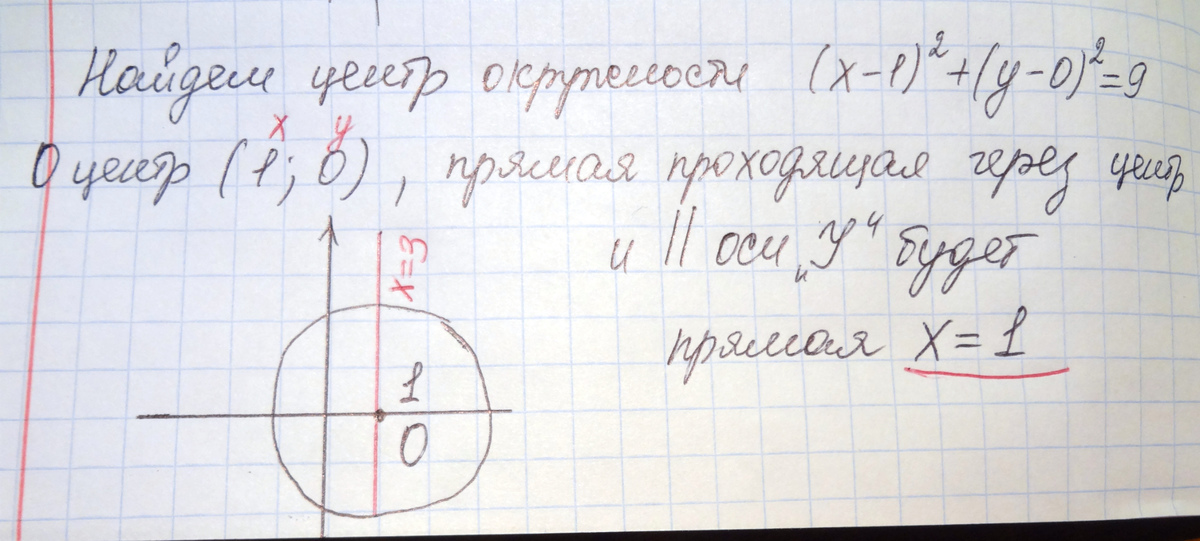 Найдем центр окружности (x-1)²+(y-0)²=9
x y
О центр (1; 0), прямая проходящая через центр
и || оси „У“ будет
x=3
прямая x=1
1
0